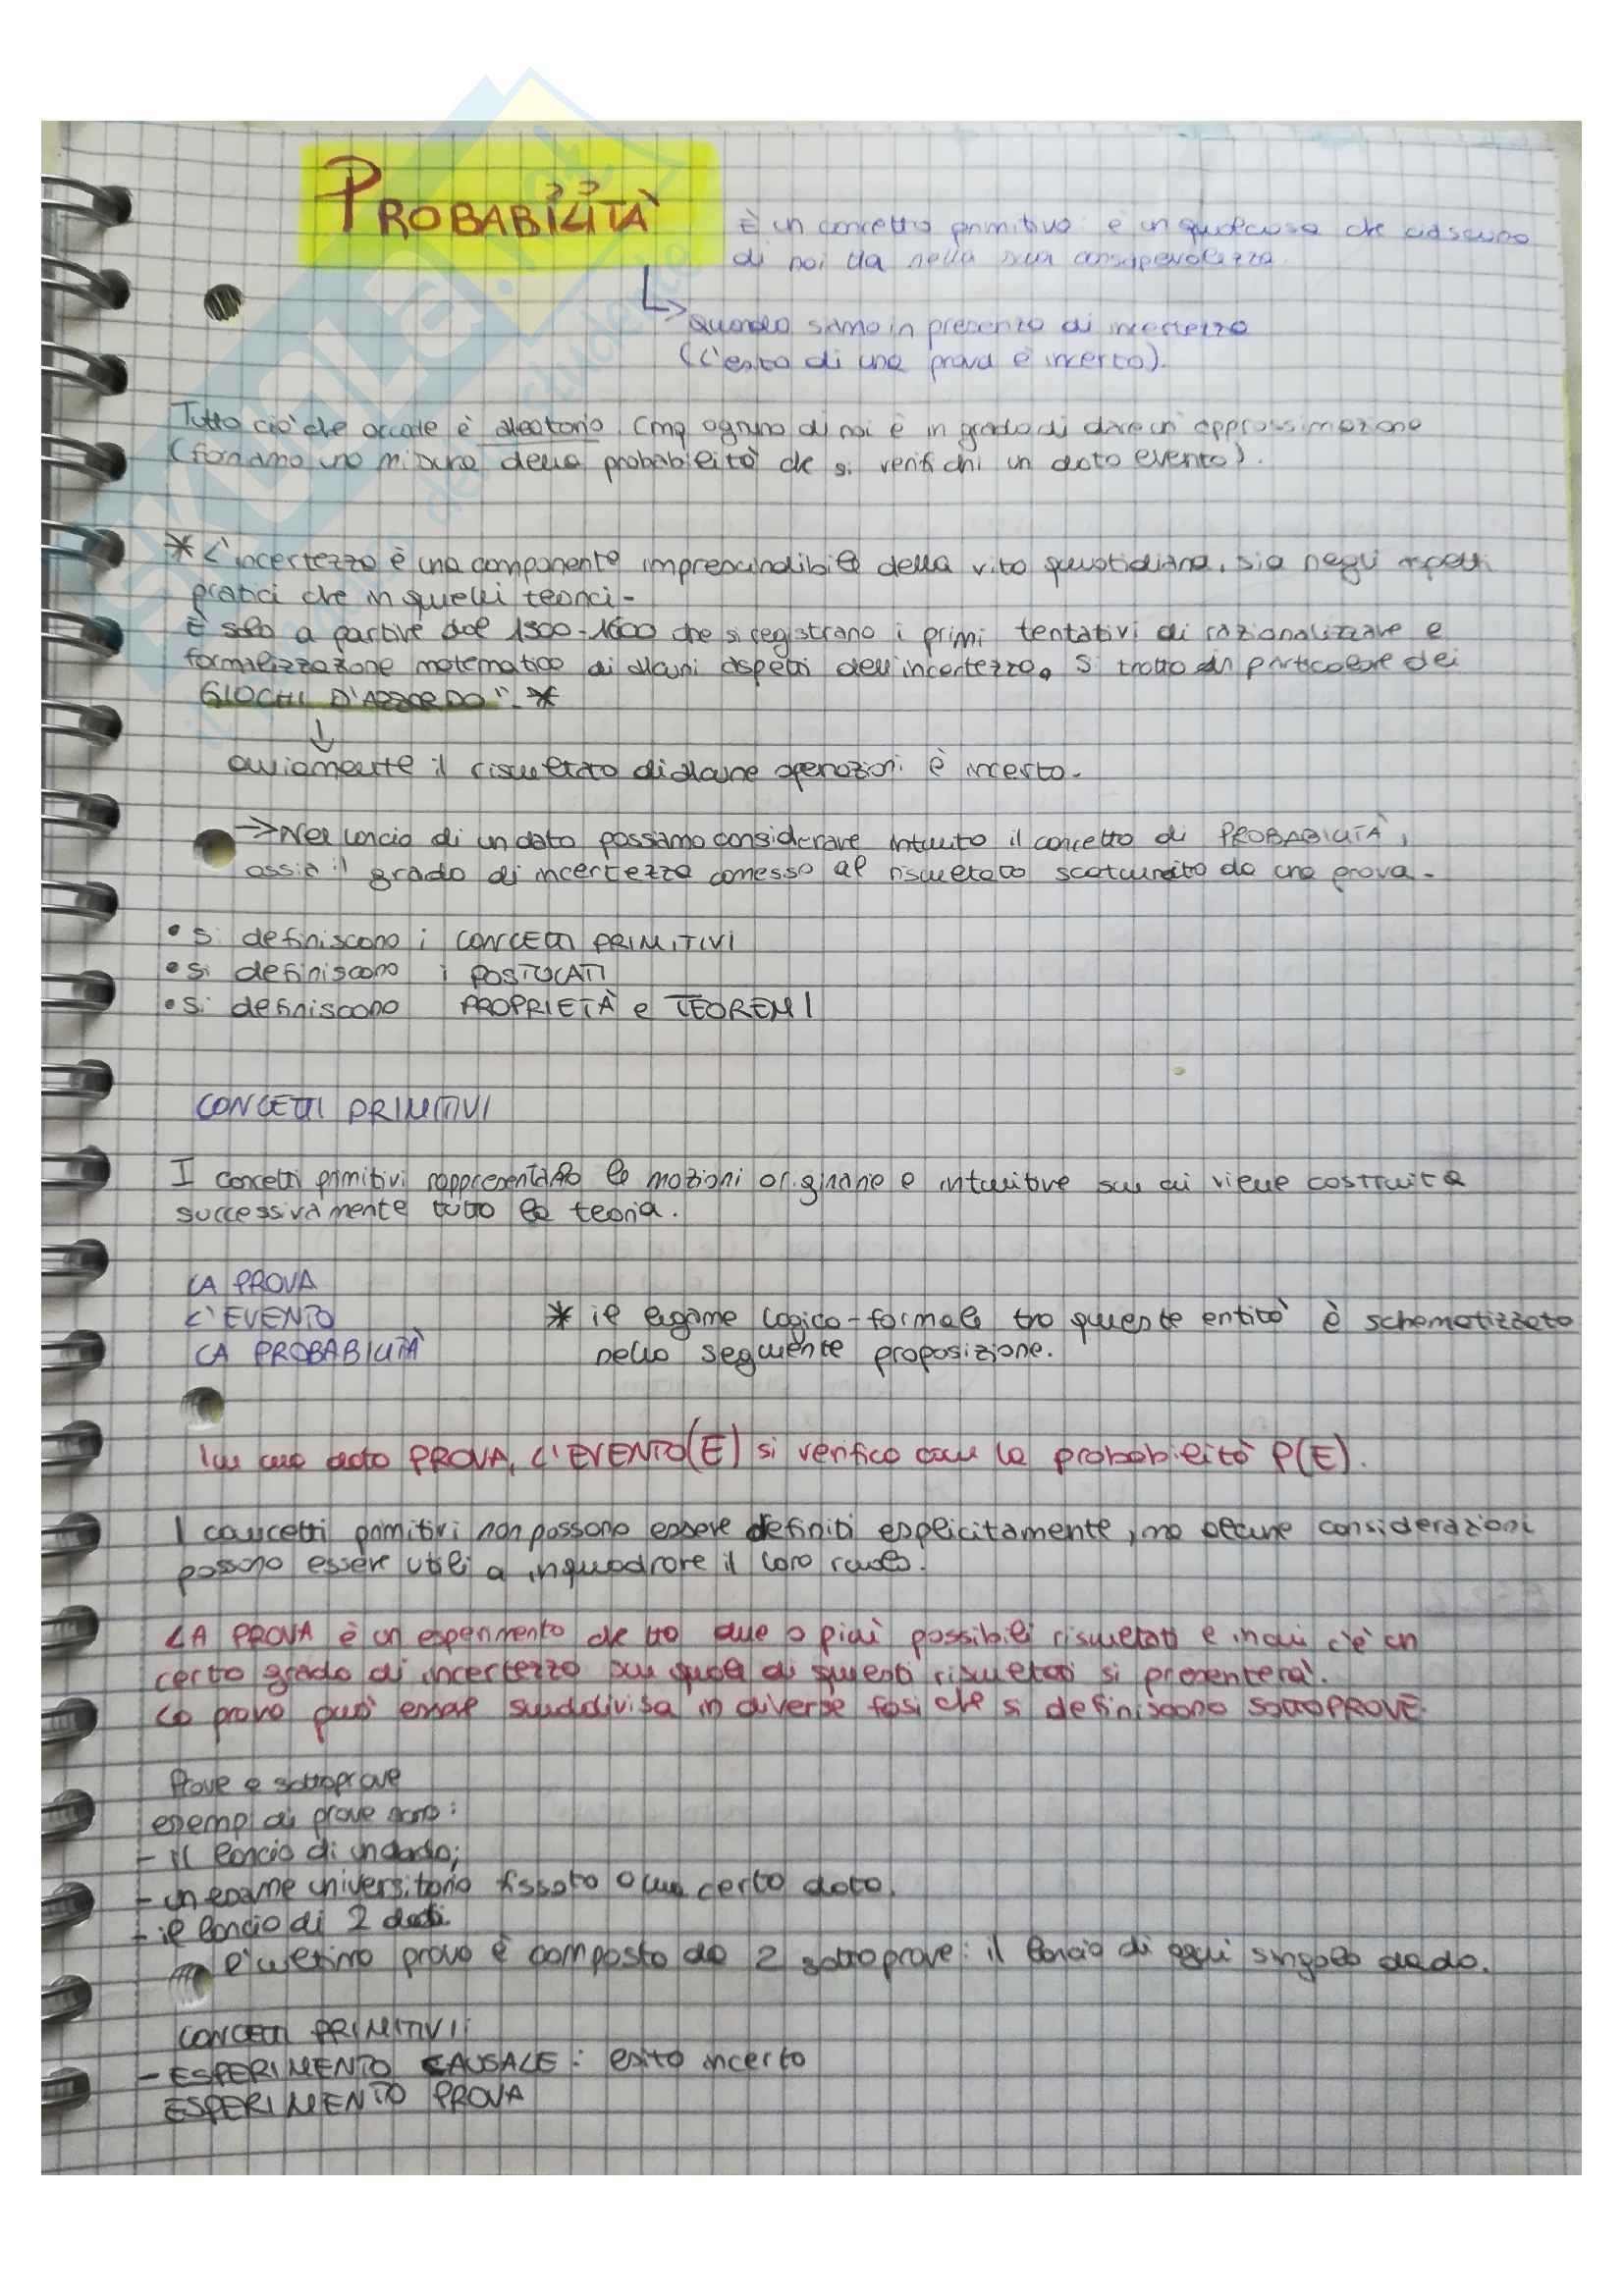 PROBABILITÀ
È un concetto primitivo è un qualcosa che ciascuno
di noi ha nella sua consapevolezza.
Quando siamo in presenza di incertezza
(l'esito di una prova è incerto).
Tutto ciò che accade è aleatorio. Cmq ognuno di noi è in grado di dare un'approssimazione
(forniamo una misura della probabilità che si verifichi un dato evento).
* L'incertezza è una componente imprescindibile della vita quotidiana, sia negli aspetti
pratici che in quelli teorici-
È solo a partire dal 1500-1600 che si registrano i primi tentativi di razionalizzare e
formalizzazione matematica di alcuni aspetti dell'incertezza. Si tratta in particolare dei
GIOCHI D'AZZARDO". *
↓
ovviamente il risultato di alcune operazioni è incerto.
→ Nel lancio di un dato possiamo considerare intuito il concetto di PROBABILITÀ,
ossia il grado di incertezza connesso al risultato scaturito da una prova.
• Si definiscono i CONCETTI PRIMITIVI
• Si definiscono i POSTULATI
• Si definiscono PROPRIETÀ e TEOREMI
CONCETTI PRIMITIVI
I concetti primitivi rappresentano le nozioni originarie e intuitive su cui viene costruita
successivamente tutta la teoria.
LA PROVA
L'EVENTO
LA PROBABILITÀ
* il legame logico-formale tra queste entità è schematizzato
nella seguente proposizione.
In una data PROVA, L'EVENTO (E) si verifica con la probabilità P(E).
I concetti primitivi non possono essere definiti esplicitamente, ma alcune considerazioni
possono essere utili a inquadrare il loro ruolo.
LA PROVA è un esperimento che ha due o più possibili risultati e in cui c'è un
certo grado di incertezza su quale di questi risultati si presenterà.
La prova può essere suddivisa in diverse fasi che si definiscono SOTTOPROVE.
Prove e sottoprove
esempi di prove sono:
- il lancio di un dado;
- un esame universitario fissato a una certa data.
- il lancio di 2 dadi.
l'ultima prova è composta da 2 sottoprove: il lancio di ogni singolo dado.
CONCETTI PRIMITIVI:
- ESPERIMENTO CAUSALE: esito incerto
ESPERIMENTO PROVA
SKUOLA.net